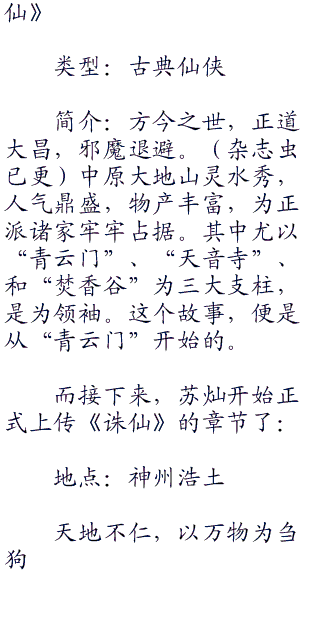 仙》
类型：古典仙侠
简介：方今之世，正道
大昌，邪魔退避。（杂志虫
已更）中原大地山灵水秀，
人气鼎盛，物产丰富，为正
派诸家牢牢占据。其中尤以
“青云门”、“天音寺”、
和“焚香谷”为三大支柱，
是为领袖。这个故事，便是
从“青云门”开始的。
而接下来，苏灿开始正
式上传《诛仙》的章节了：
地点：神州浩土
天地不仁，以万物为刍
狗